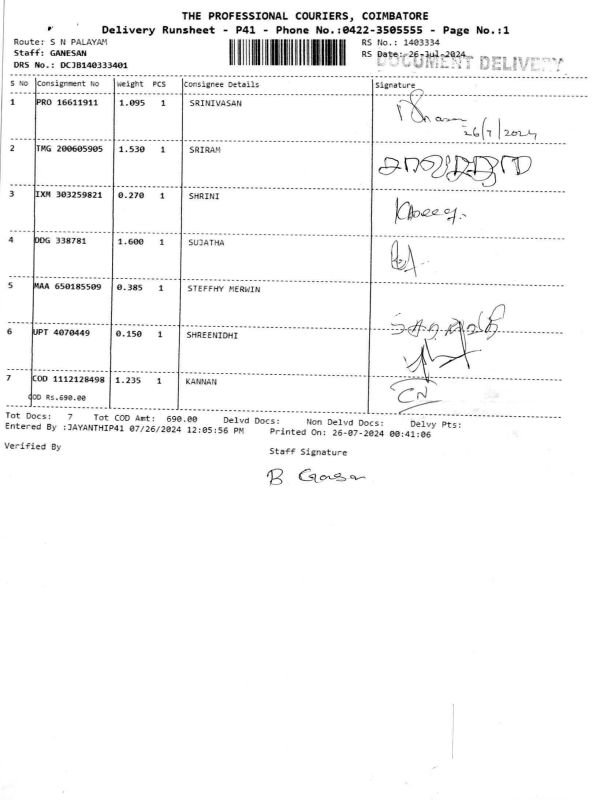 THE PROFESSIONAL COURIERS, COIMBATORE
Delivery Runsheet - P41 - Phone No.:0422-3505555 - Page No.:1
Route: S N PALAYAM RS No.: 1403334
Staff: GANESAN RS Date: 26-Jul-2024
DRS No.: DCJB140333401 DOCUMENT DELIVERY
S No Consignment No Weight PCS Consignee Details Signature
1 PRO 16611911 1.095 1 SRINIVASAN
26/7/2024
2 TMG 200605905 1.530 1 SRIRAM
3 IXM 303259821 0.270 1 SHRINI
4 DDG 338781 1.600 1 SUJATHA
5 MAA 650185509 0.385 1 STEFFHY MERWIN
6 UPT 4070449 0.150 1 SHREENIDHI
7 COD 1112128498 1.235 1 KANNAN
COD Rs.690.00
Tot Docs: 7 Tot COD Amt: 690.00 Delvd Docs: Non Delvd Docs: Delvy Pts:
Entered By :JAYANTHIP41 07/26/2024 12:05:56 PM Printed On: 26-07-2024 00:41:06
Verified By Staff Signature